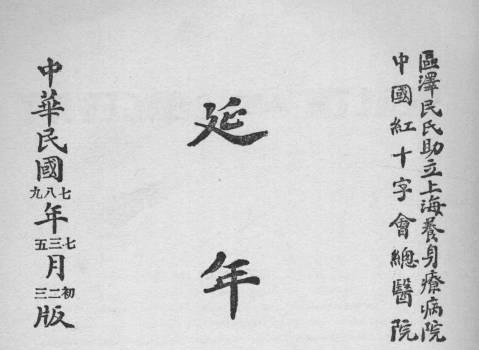 區澤民氏助立上海養身療病院
中國紅十字會總醫院
延年
中華民國七八九年七三五月初二三版